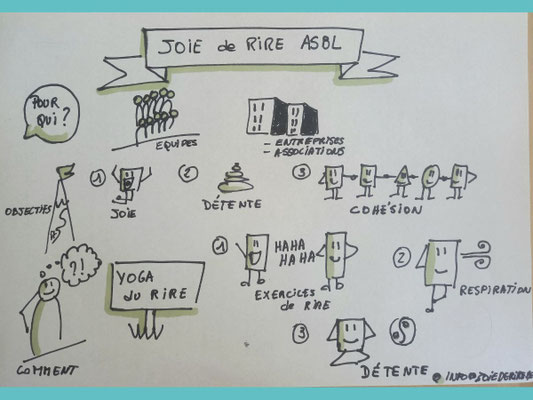 JOIE de RIRE ASBL
POUR
QUI?
EQUIPES
- ENTREPRISES
- ASSOCIATIONS
OBJECTIFS
1
JOIE
2
DÉTENTE
3
COHÉSION
?!
COMMENT
YOGA
du RIRE
1
HAHA
HAHA
EXERCICES de RIRE
2
RESPIRATION
3
DÉTENTE